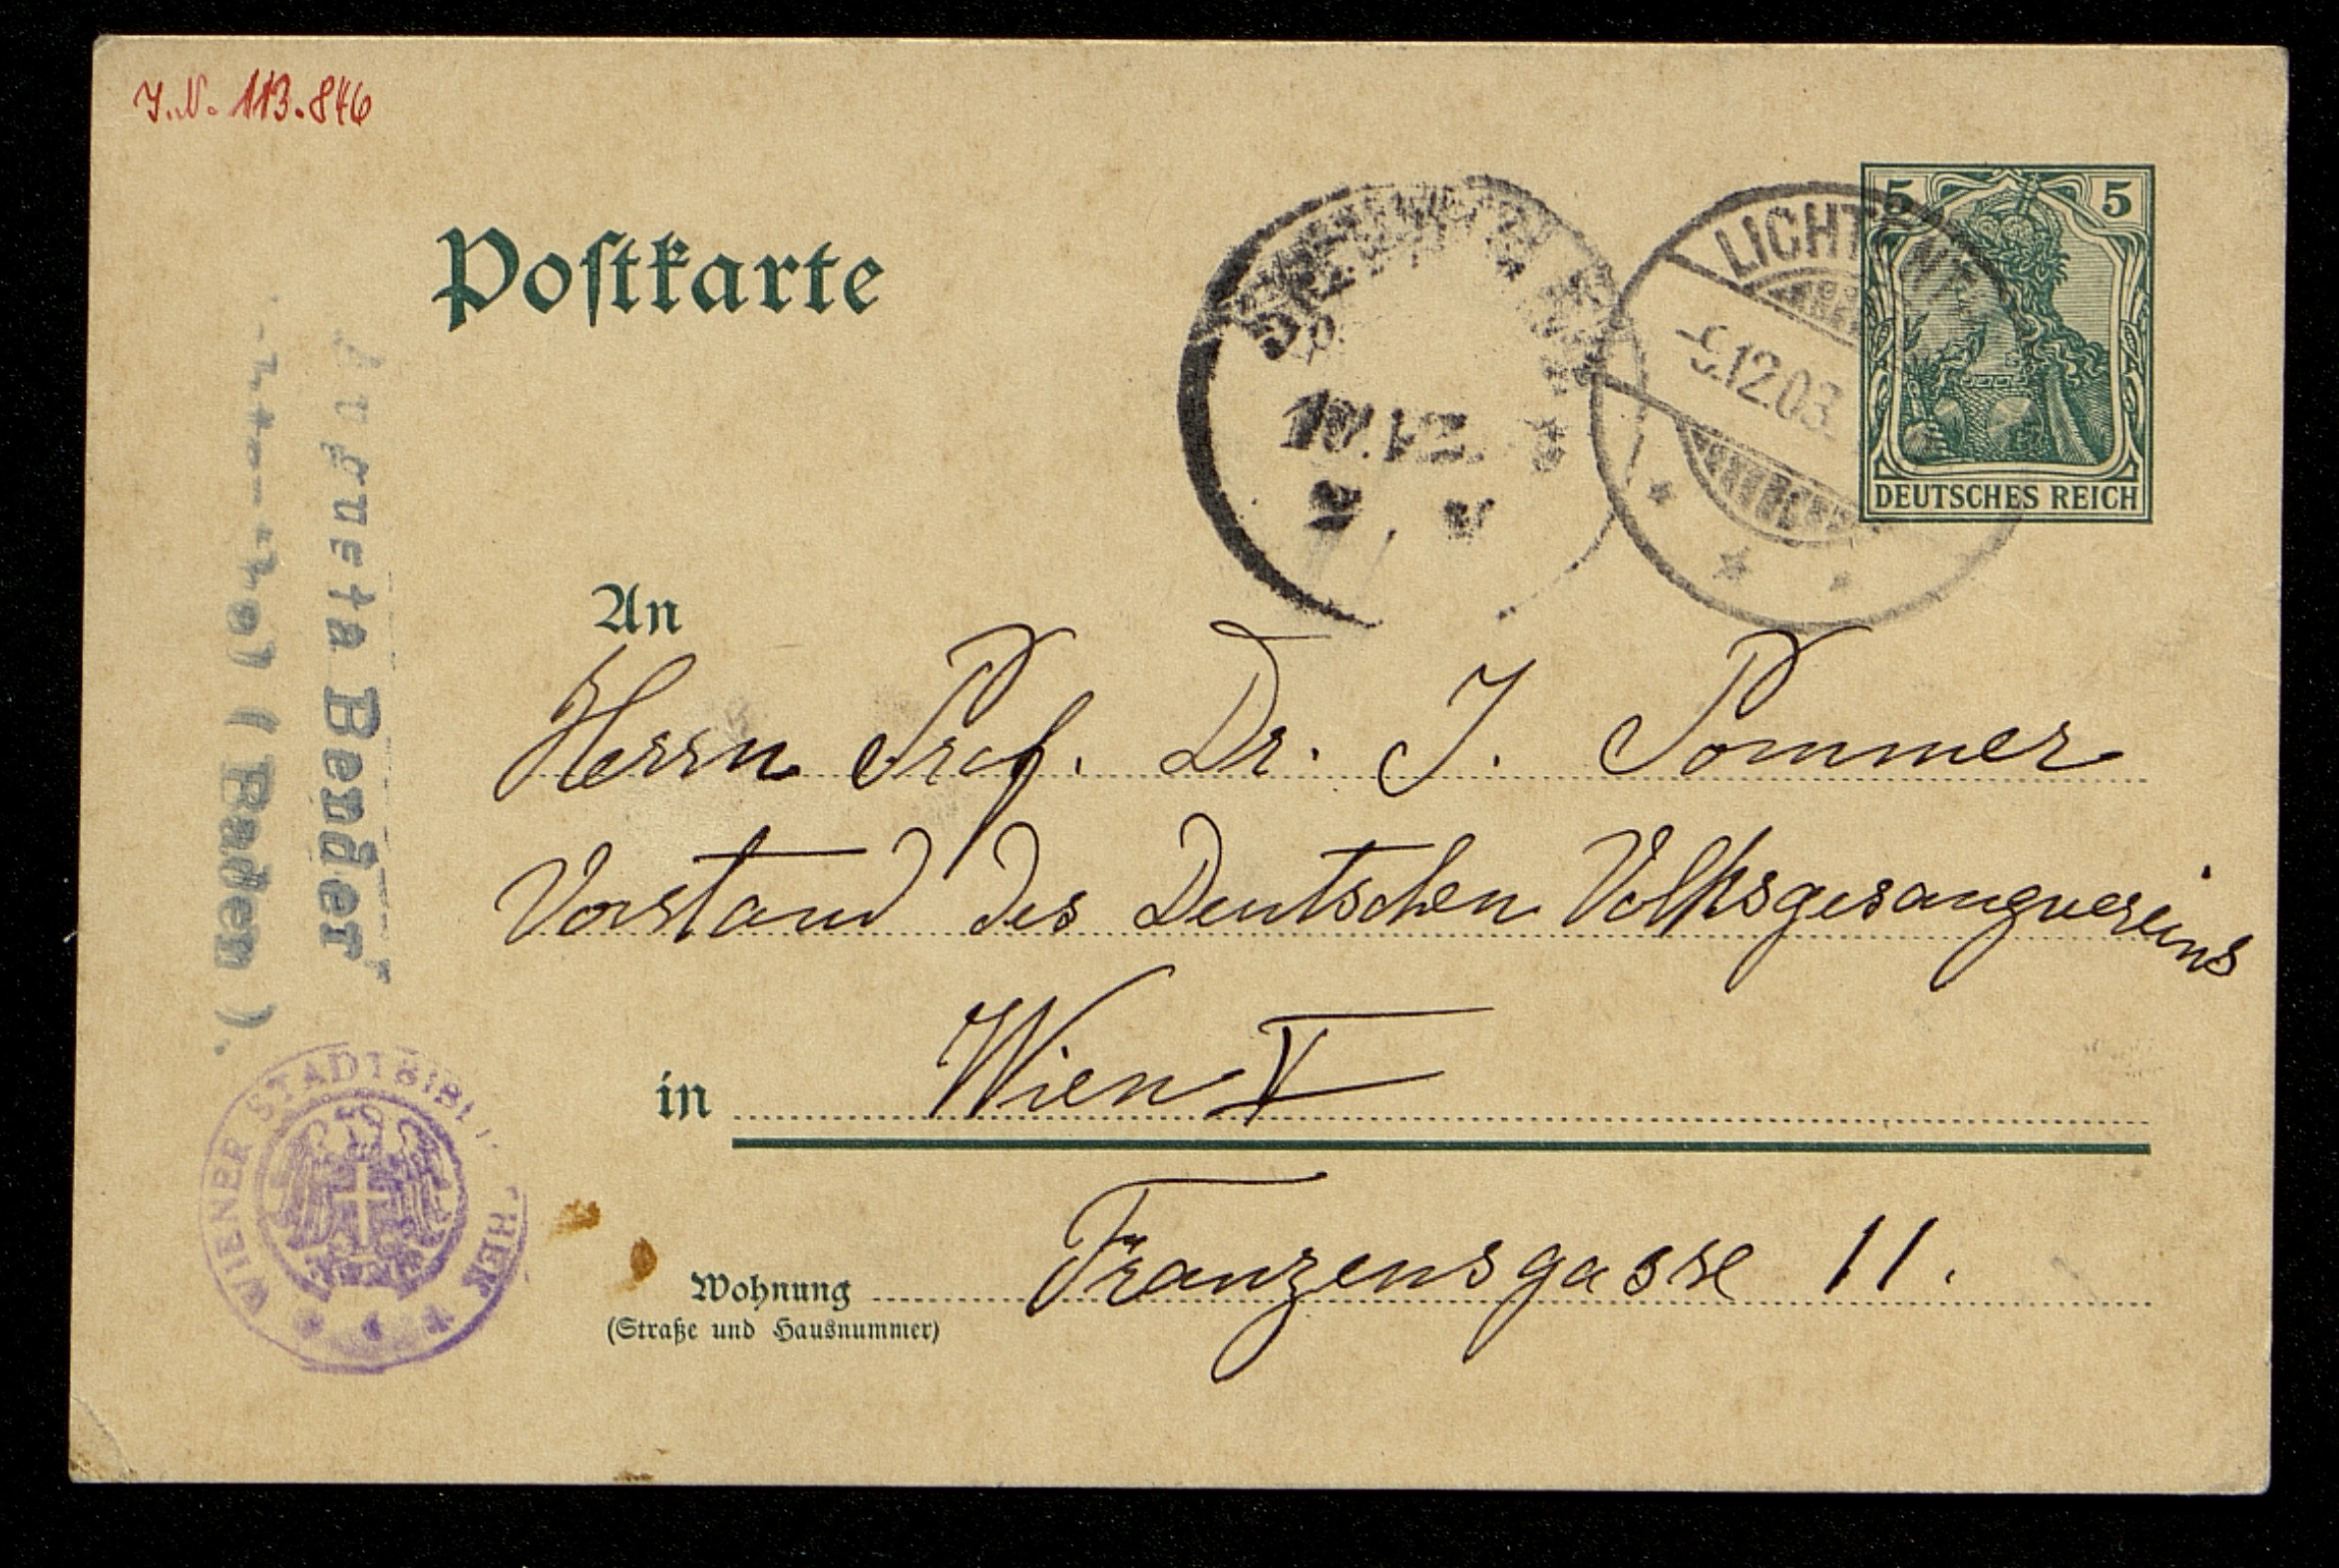 J.N. 113.846
Postkarte
5 5
DEUTSCHES REICH
LICHTENT
-9.12.03.
Augusta Bender
(Baden).
An
Herrn Prof. Dr. J. Pommer
Vorstand des Deutschen Volksgesangvereins
in Wien V
Wohnung Franzensgasse 11.
(Straße und Hausnummer)
WIENER STADTBIBLIOTHEK